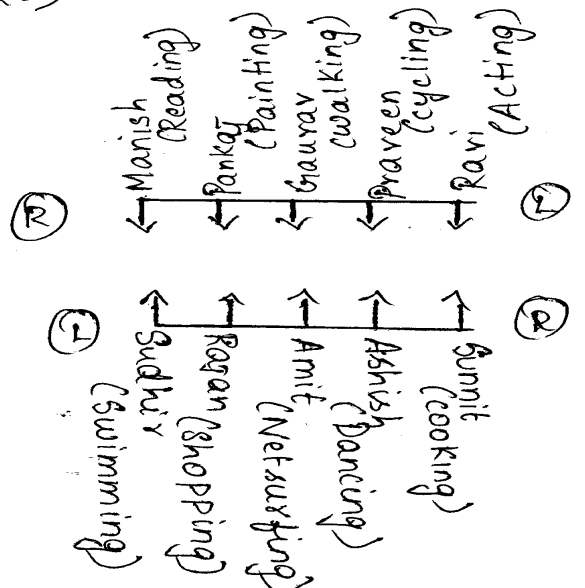 Manish
(Reading)
Pankaj
(Painting)
Gaurav
(walking)
Praveen
(cycling)
Ravi
(Acting)
R
L
L
R
Sudhir
(Swimming)
Rajan (shopping)
Amit
(Netsurfing)
Ashish
(Dancing)
Sumit
(cooking)